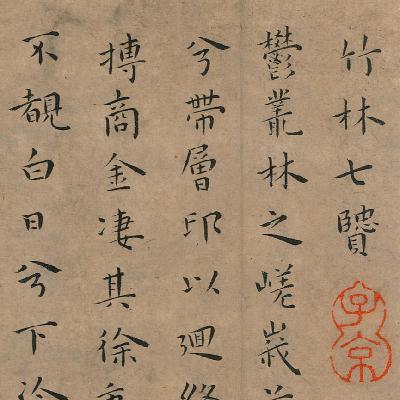 竹林七贒
鬱叢林之嵯峩
兮帶層邱以迴
摶商金凄其徐
不覩白日兮下
子京